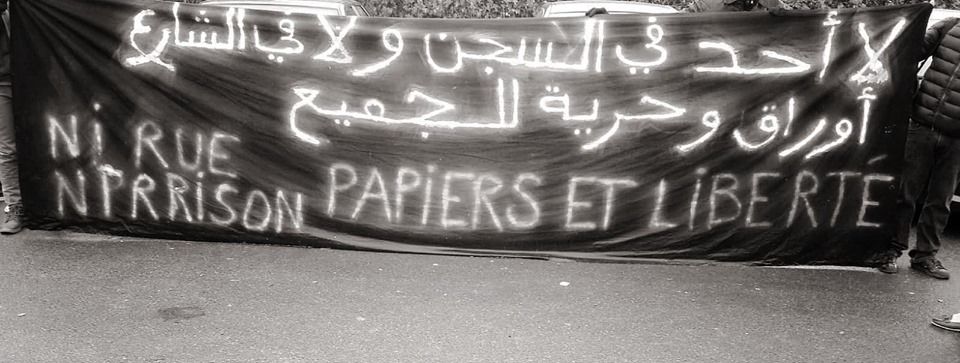 لا أحد في السجن و لا في الشارع
أوراق و حرية للجميع
Ni RUE
Ni PRRiSON PAPiERS ET LiBERTÉ